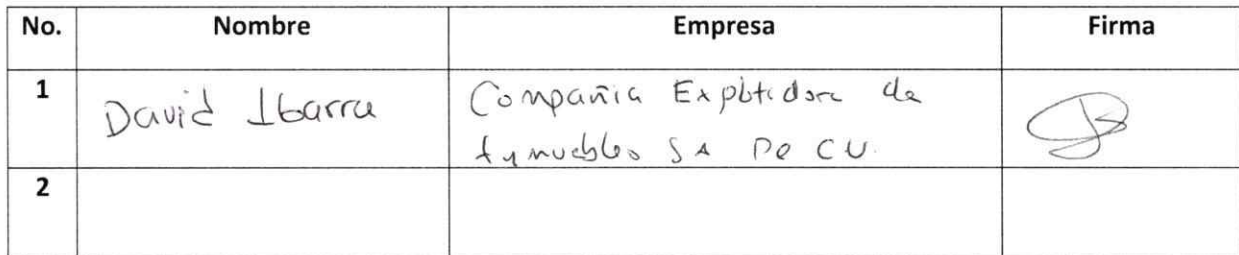 No. Nombre Empresa Firma
1 David Ibarra Compañia Explotidora de
Inmuebles SA De CV.
2